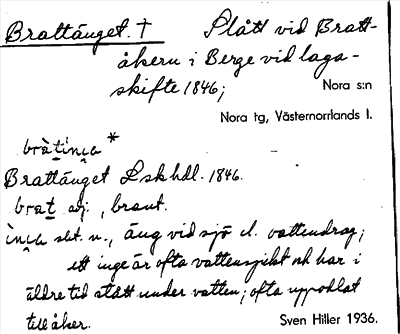 Brattänget. † Slått vid Bratt-
åkern i Berge vid laga-
skifte 1846;
Nora s:n
Nora tg, Västernorrlands l.
bràtiŋɷ *
Brattänget Lskhdl. 1846.
brat adj., brant.
sbt. n., äng vid sjö el. vattendrag;
ett inge är ofta vattensjukt och har i
äldre tid stått under vatten; ofta uppodlat
till åker.
Sven Hiller 1936.